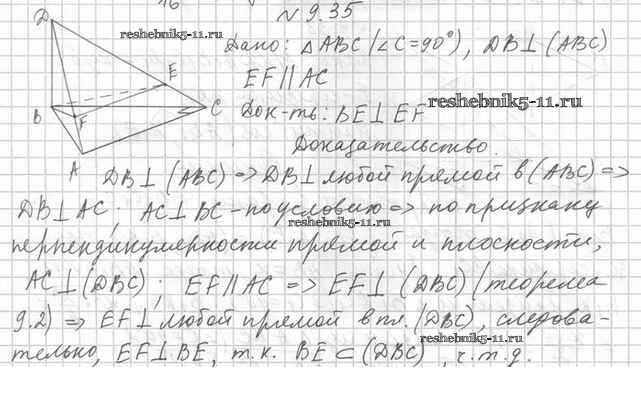 16
№ 9.35
D
reshebnik5-11.ru
Дано: △ABC (∠C=90°), DB⊥(ABC)
E
EF∥AC
B
F
C
Док-ть: BE⊥EF
reshebnik5-11.ru
Доказательство.
A
DB⊥(ABC)=>DB⊥любой прямой в (ABC)=>
DB⊥AC; AC⊥BC-по условию=> по признаку
reshebnik5-11.ru
перпендикулярности прямой и плоскости,
AC⊥(DBC); EF∥AC => EF⊥(DBC) (теорема
9.2) => EF⊥любой прямой в пл. (DBC), следова-
reshebnik5-11.ru
тельно, EF⊥BE, т.к. BE⊂(DBC), ч.т.д.